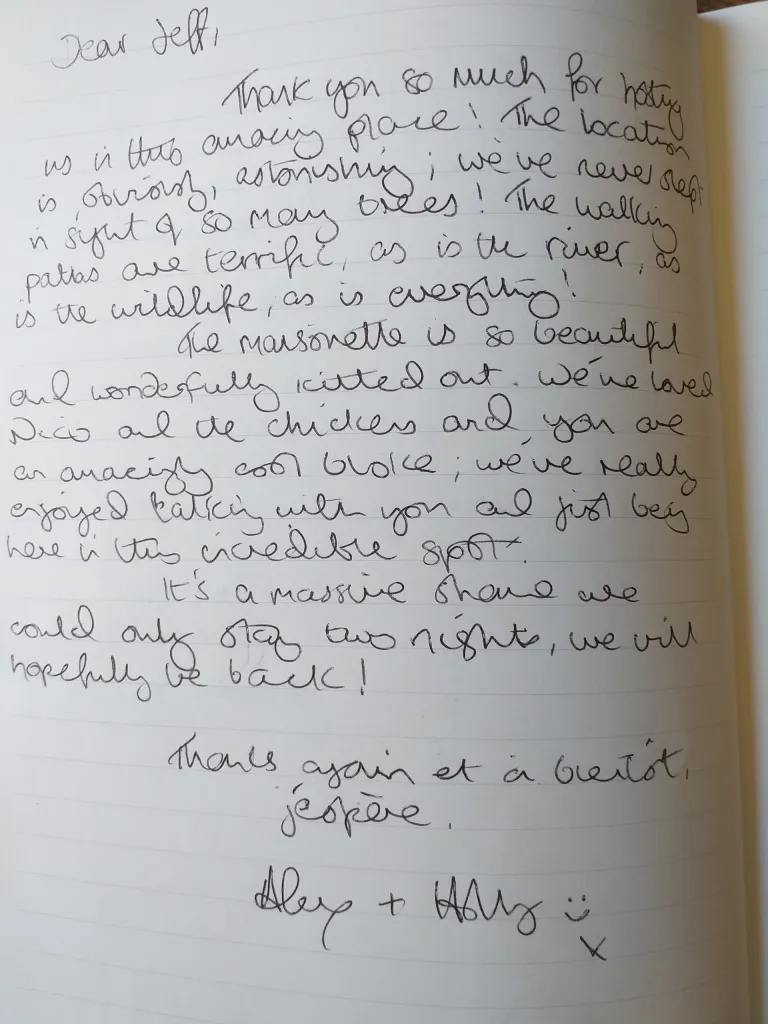 Dear Jeff,
Thank you so much for hosting
us in this amazing place! The location
is, obviously, astonishing; we've never slept
in sight of so many trees! The walking
paths are terrific, as is the river, as
is the wildlife, as is everything!
The maisonette is so beautiful
and wonderfully kitted out. We've loved
Nico and the chickens and you are
an amazingly cool bloke; we've really
enjoyed talking with you and just being
here in this incredible spot.
It's a massive shame we
could only stay two nights, we will
hopefully be back!
Thanks again et à bientôt,
j'éspère.
Alex + Holly :)
x